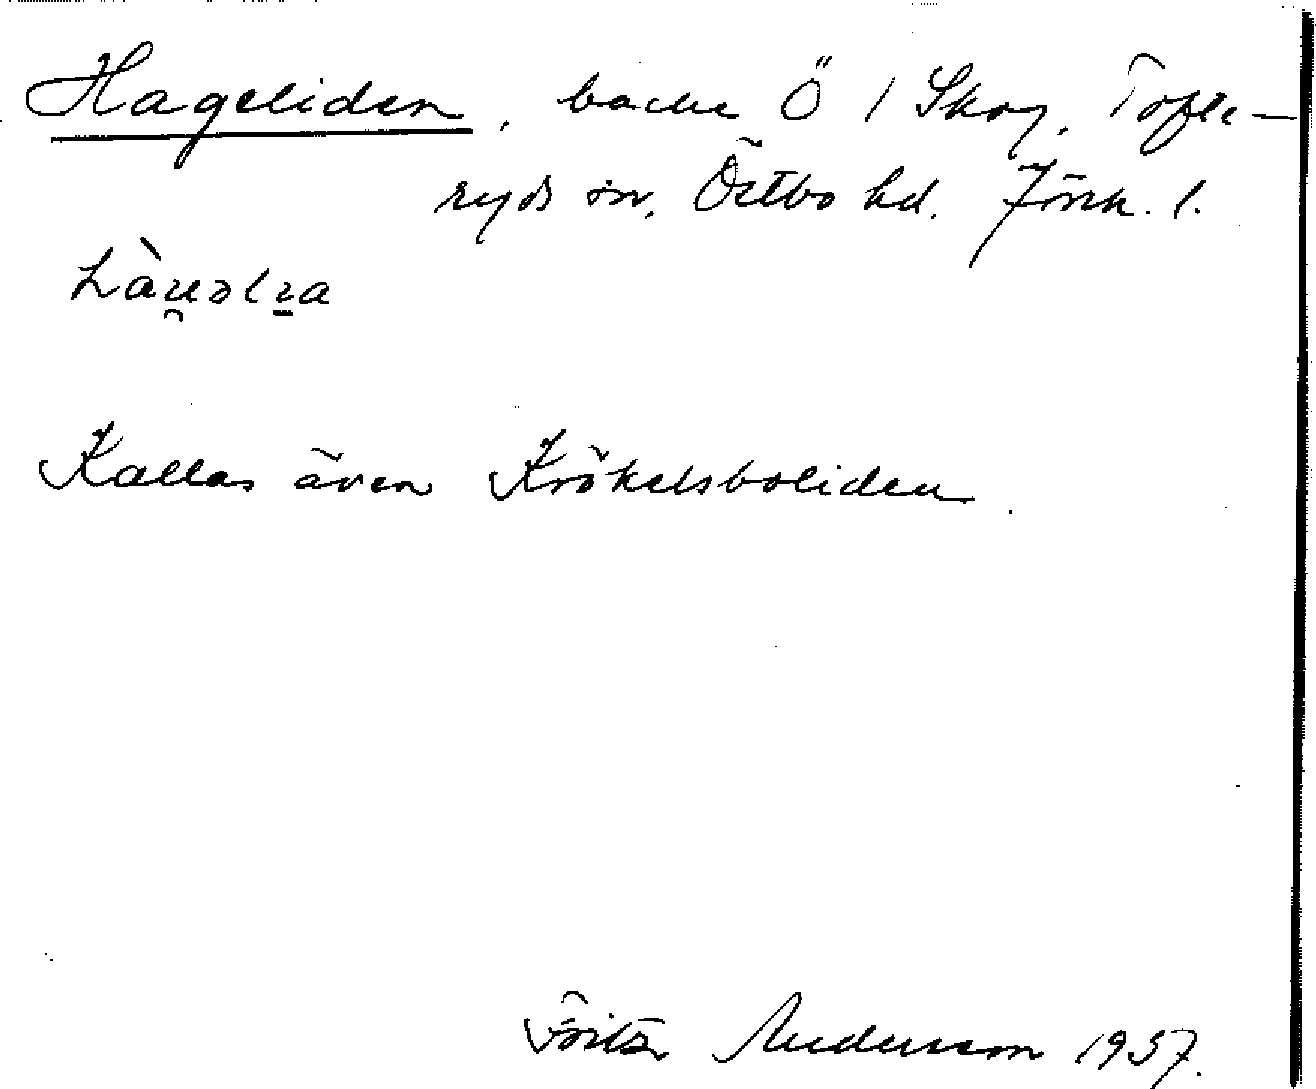 Hageliden, backe Ö / Skog, Tofte-
ryds sn, Östbo hd. Jönk. l.
Kallas även Krökelsboliden.
Fritz Andersson 1937.